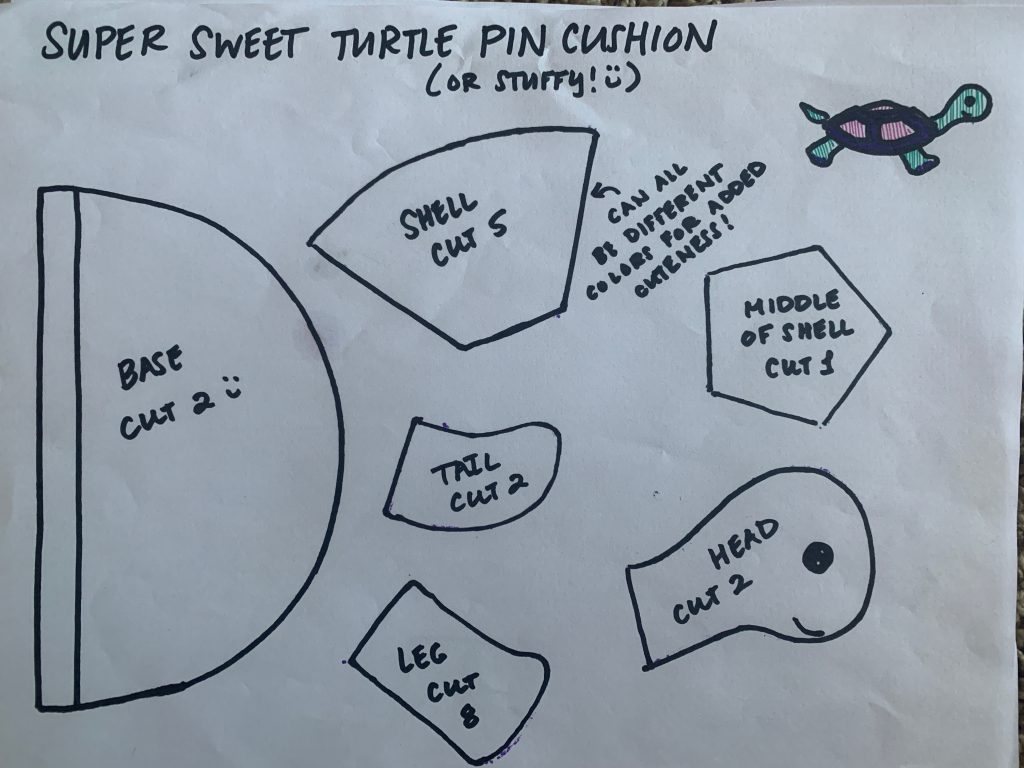 SUPER SWEET TURTLE PIN CUSHION
(OR STUFFY! Ü)
SHELL
CUT 5
← CAN ALL
BE DIFFERENT
COLORS FOR ADDED
CUTENESS!
MIDDLE
OF SHELL
CUT 1
BASE
CUT 2 Ü
TAIL
CUT 2
HEAD
CUT 2
LEG
CUT
8